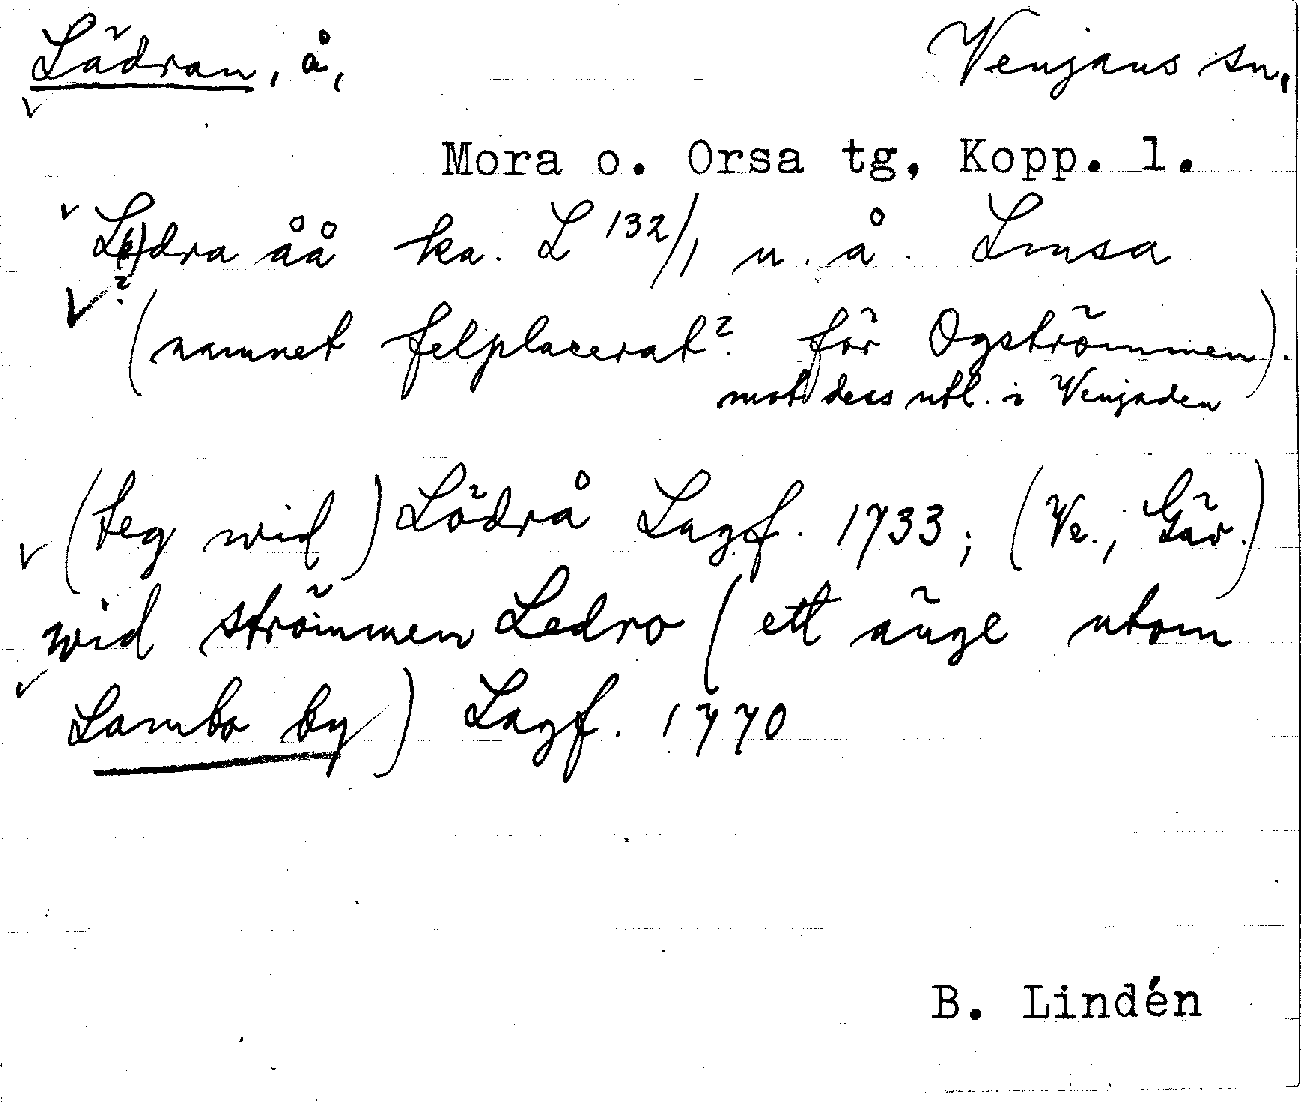 Lädran, å,
Venjans sn.
Mora o. Orsa tg, Kopp. l.
dra åå ka. L 132/1 n. å. Limsa
?
(namnet felplacerat? för Ogströmmen).
mot dess utl. i Venjaden
(teg wid) Lödrå Lagf. 1733; (Ve., Gäv.)
wid strömmen Ledro (ett änge utom
Lambo by) Lagf. 1770
B. Lindén